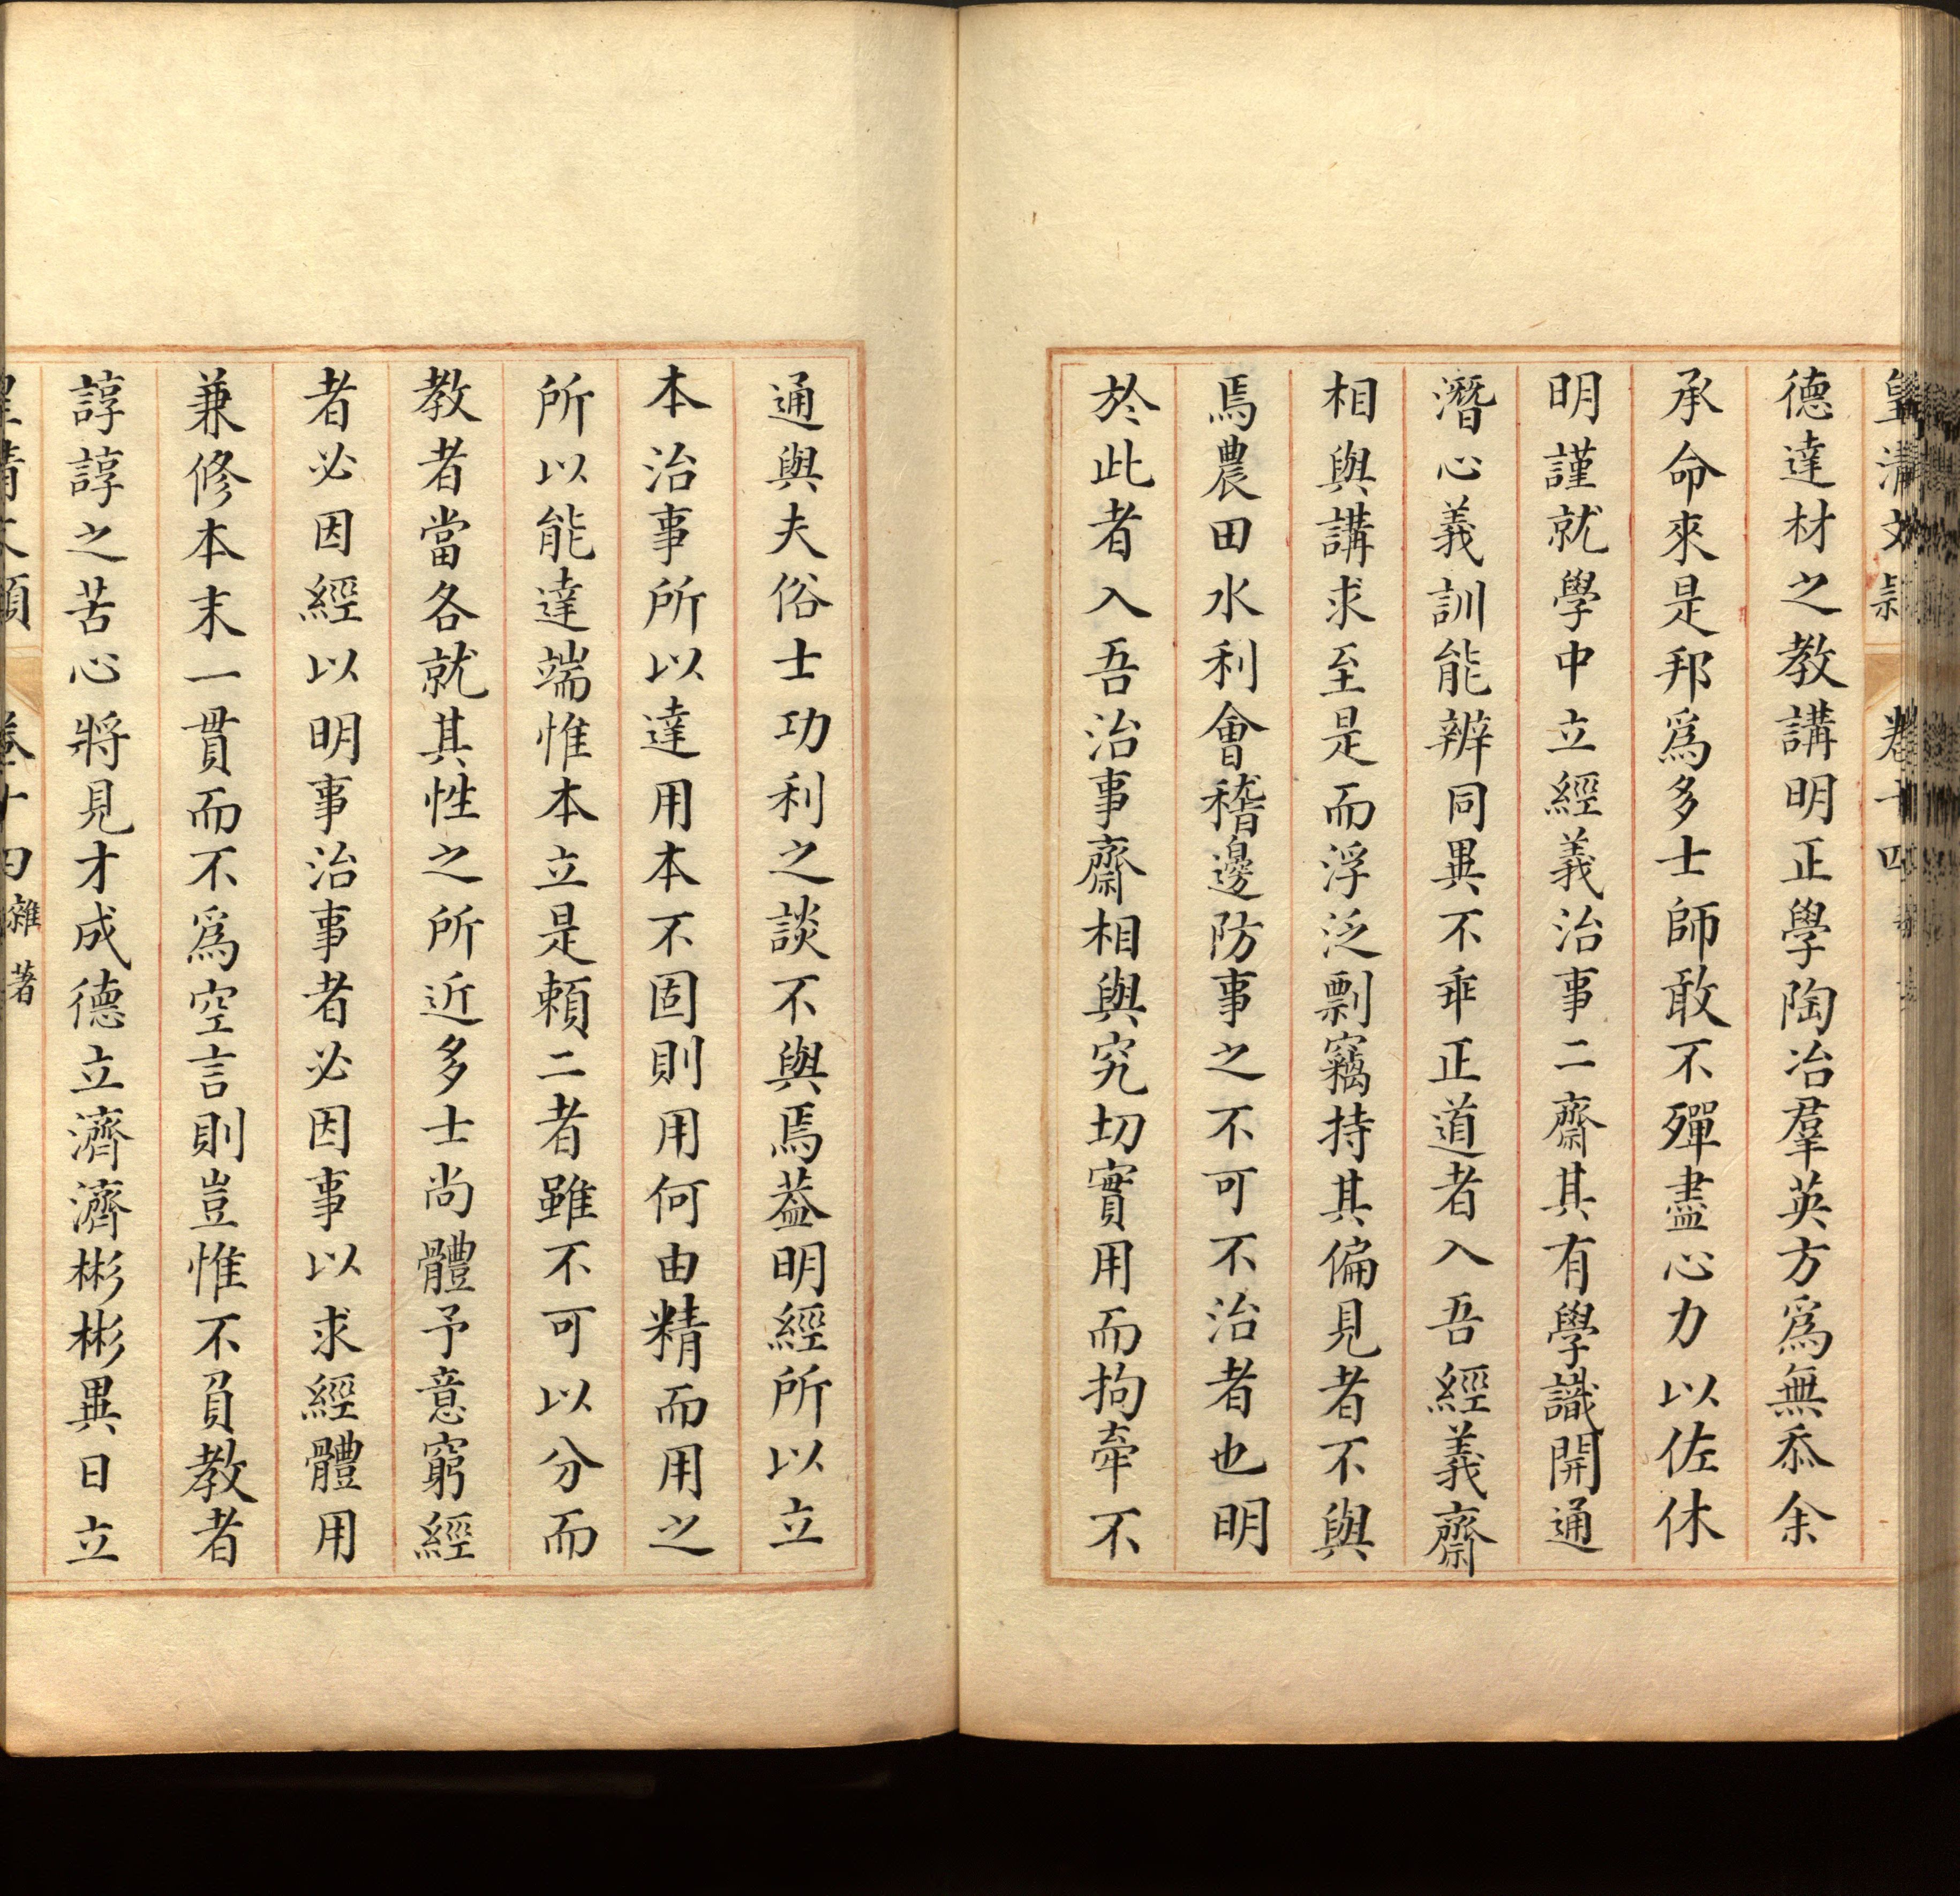 皇清文穎 卷十四
德達材之教講明正學陶冶羣英方爲無忝余
承命來是邦爲多士師敢不殫盡心力以佐休
明謹就學中立經義治事二齋其有學識開通
潛心義訓能辨同異不乖正道者入吾經義齋
相與講求至是而浮泛剽竊持其偏見者不與
焉農田水利會稽邊防事之不可不治者也明
於此者入吾治事齋相與究切實用而拘牽不
通與夫俗士功利之談不與焉葢明經所以立
本治事所以達用本不固則用何由精而用之
所以能達端惟本立是頼二者雖不可以分而
教者當各就其性之所近多士尚體予意窮經
者必因經以明事治事者必因事以求經體用
兼修本末一貫而不爲空言則豈惟不負教者
諄諄之苦心將見才成德立濟濟彬彬異日立
雜著